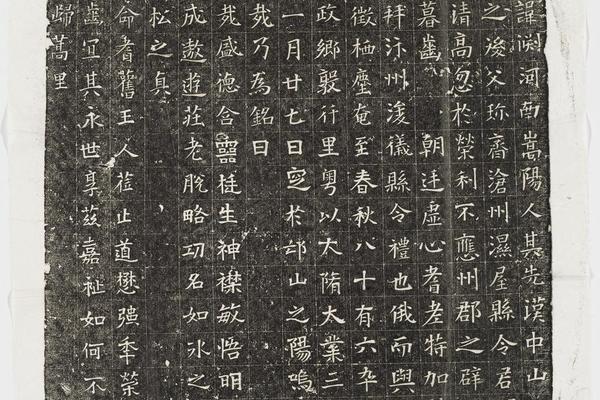 諱渕河南嵩陽人其先漢中山
之後父珎齊滄州濕屋縣令君
清高忽於榮利不應州郡之辟
暮齒 朝廷虛心耆耊特加
拜汴州浚儀縣令禮也俄而與
徵栖塵奄至春秋八十有六卒
政鄉毅行里粤以大隋大業三
一月廿七日窆於邙山之陽嗚
㢤乃為銘曰
㢤盛德含靈挺生神襟敏悟明
成遨遊莊老脫略功名如冰之
松之真
命耆舊王人蒞止道懋强秊榮
齒宜其永世享茲嘉祉如何不
歸蒿里